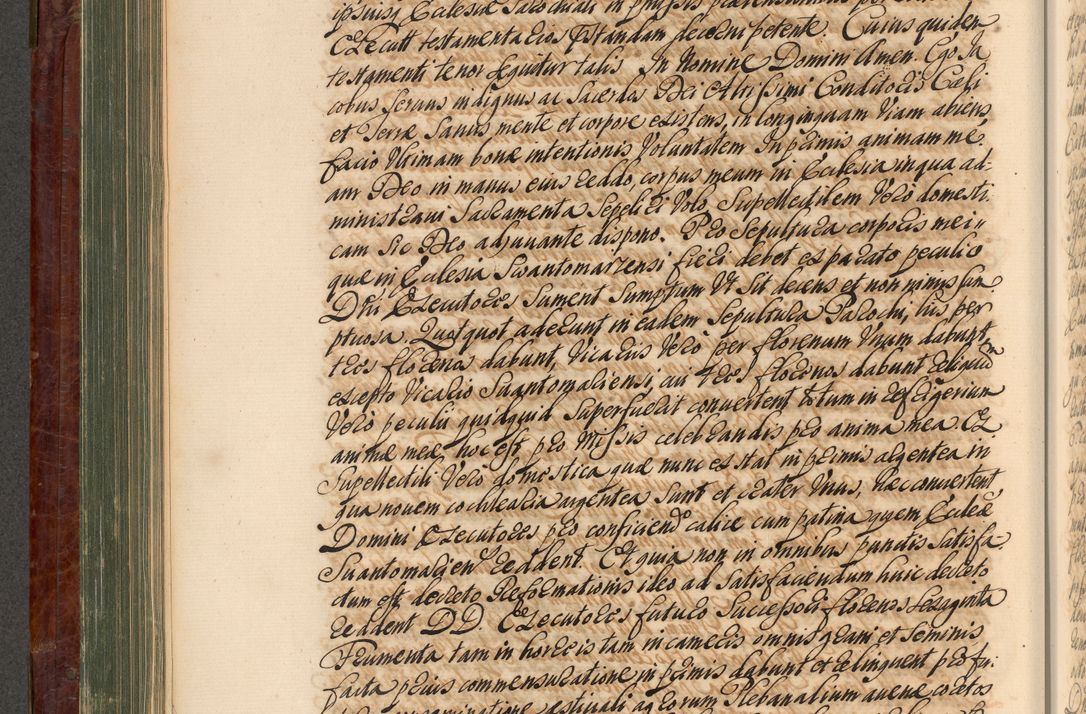 ipsiusq Ecclesiæ
Execut testamentarios ptandam decerni petente. Cuius quidem
testamenti tenor sequitur talis. In Nomine Domini Amen. Ego Ja
cobus Seranus indignus ac Sacerdos Dei Altissimi Conditoris Cæli
et Terræ Sanus mente et corpore existens, in longinquam viam abiens,
facio Ultimam bonæ intentionis Voluntatem. In primis animam me
am Deo in manus eius reddo, corpus meum in Ecclesia in qua ad
ministravi Sacramenta Sepeliri Volo. Supellectilem Vero domesti
cam sic Deo adjuvante dispono. Pro Sepultura corporis mei
quæ in Ecclesia Swantomarzensi fieri debet ex parato peculio
Dni Executores sument Sumptum Ut Sit decens et non nimis sum
ptuosa. Quotquot aderunt in eadem Sepultura Parochi, his per
tres florenos dabunt, Vicariis Vero per florenum Unum dabunt,
excepto Vicario Swantomariensi, cui tres florenos dabunt Reliquum
Vero peculii quidquid Superfuerit convertent totum in refrigerium
animæ meæ, hoc est pro Missis celebrandis pro anima mea. Ex
Supellectili Vero domestica quæ nunc exstat in primis argentea in
qua novem cochlearia argentea Sunt et crater Unus, Hæc convertent
Domini Executores pro conficiend calice cum patina quem Ecclæ
Swantomarien reddent. Et quia non in omnibus punctis Satisfa
ctum est decreto Reformationis ideo ad Satisfaciendum huic decreto
reddent DD. Executores futuro Successori florenos Sexaginta
Frumenta tam in horreis tam in cameris omnis grani et Seminis
facta prius commensuratione in primis dabunt et relinquent pro fu
æstivali agrorum Plebanalium avenæ coretos